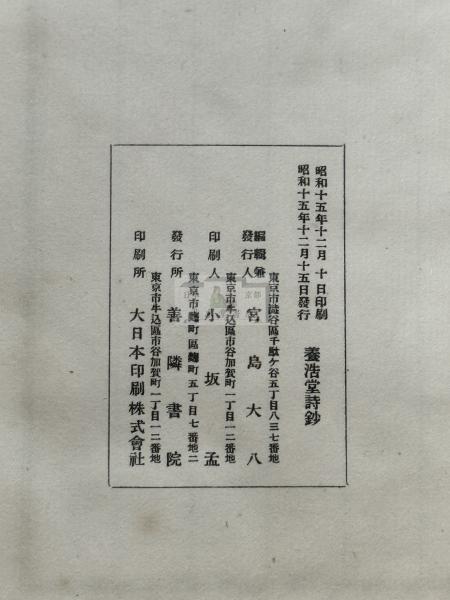 昭和十五年十二月 十日印刷
昭和十五年十二月十五日發行
養浩堂詩鈔
東京市澁谷區千駄ケ谷五丁目八三七番地
編輯兼
發行人 宮島大八
東京市牛込區市谷加賀町一丁目一二番地
印刷人 小坂孟
東京市麴町區麴町五丁目七番地二
發行所 善隣書院
東京市牛込區市谷加賀町一丁目一二番地
印刷所 大日本印刷株式會社